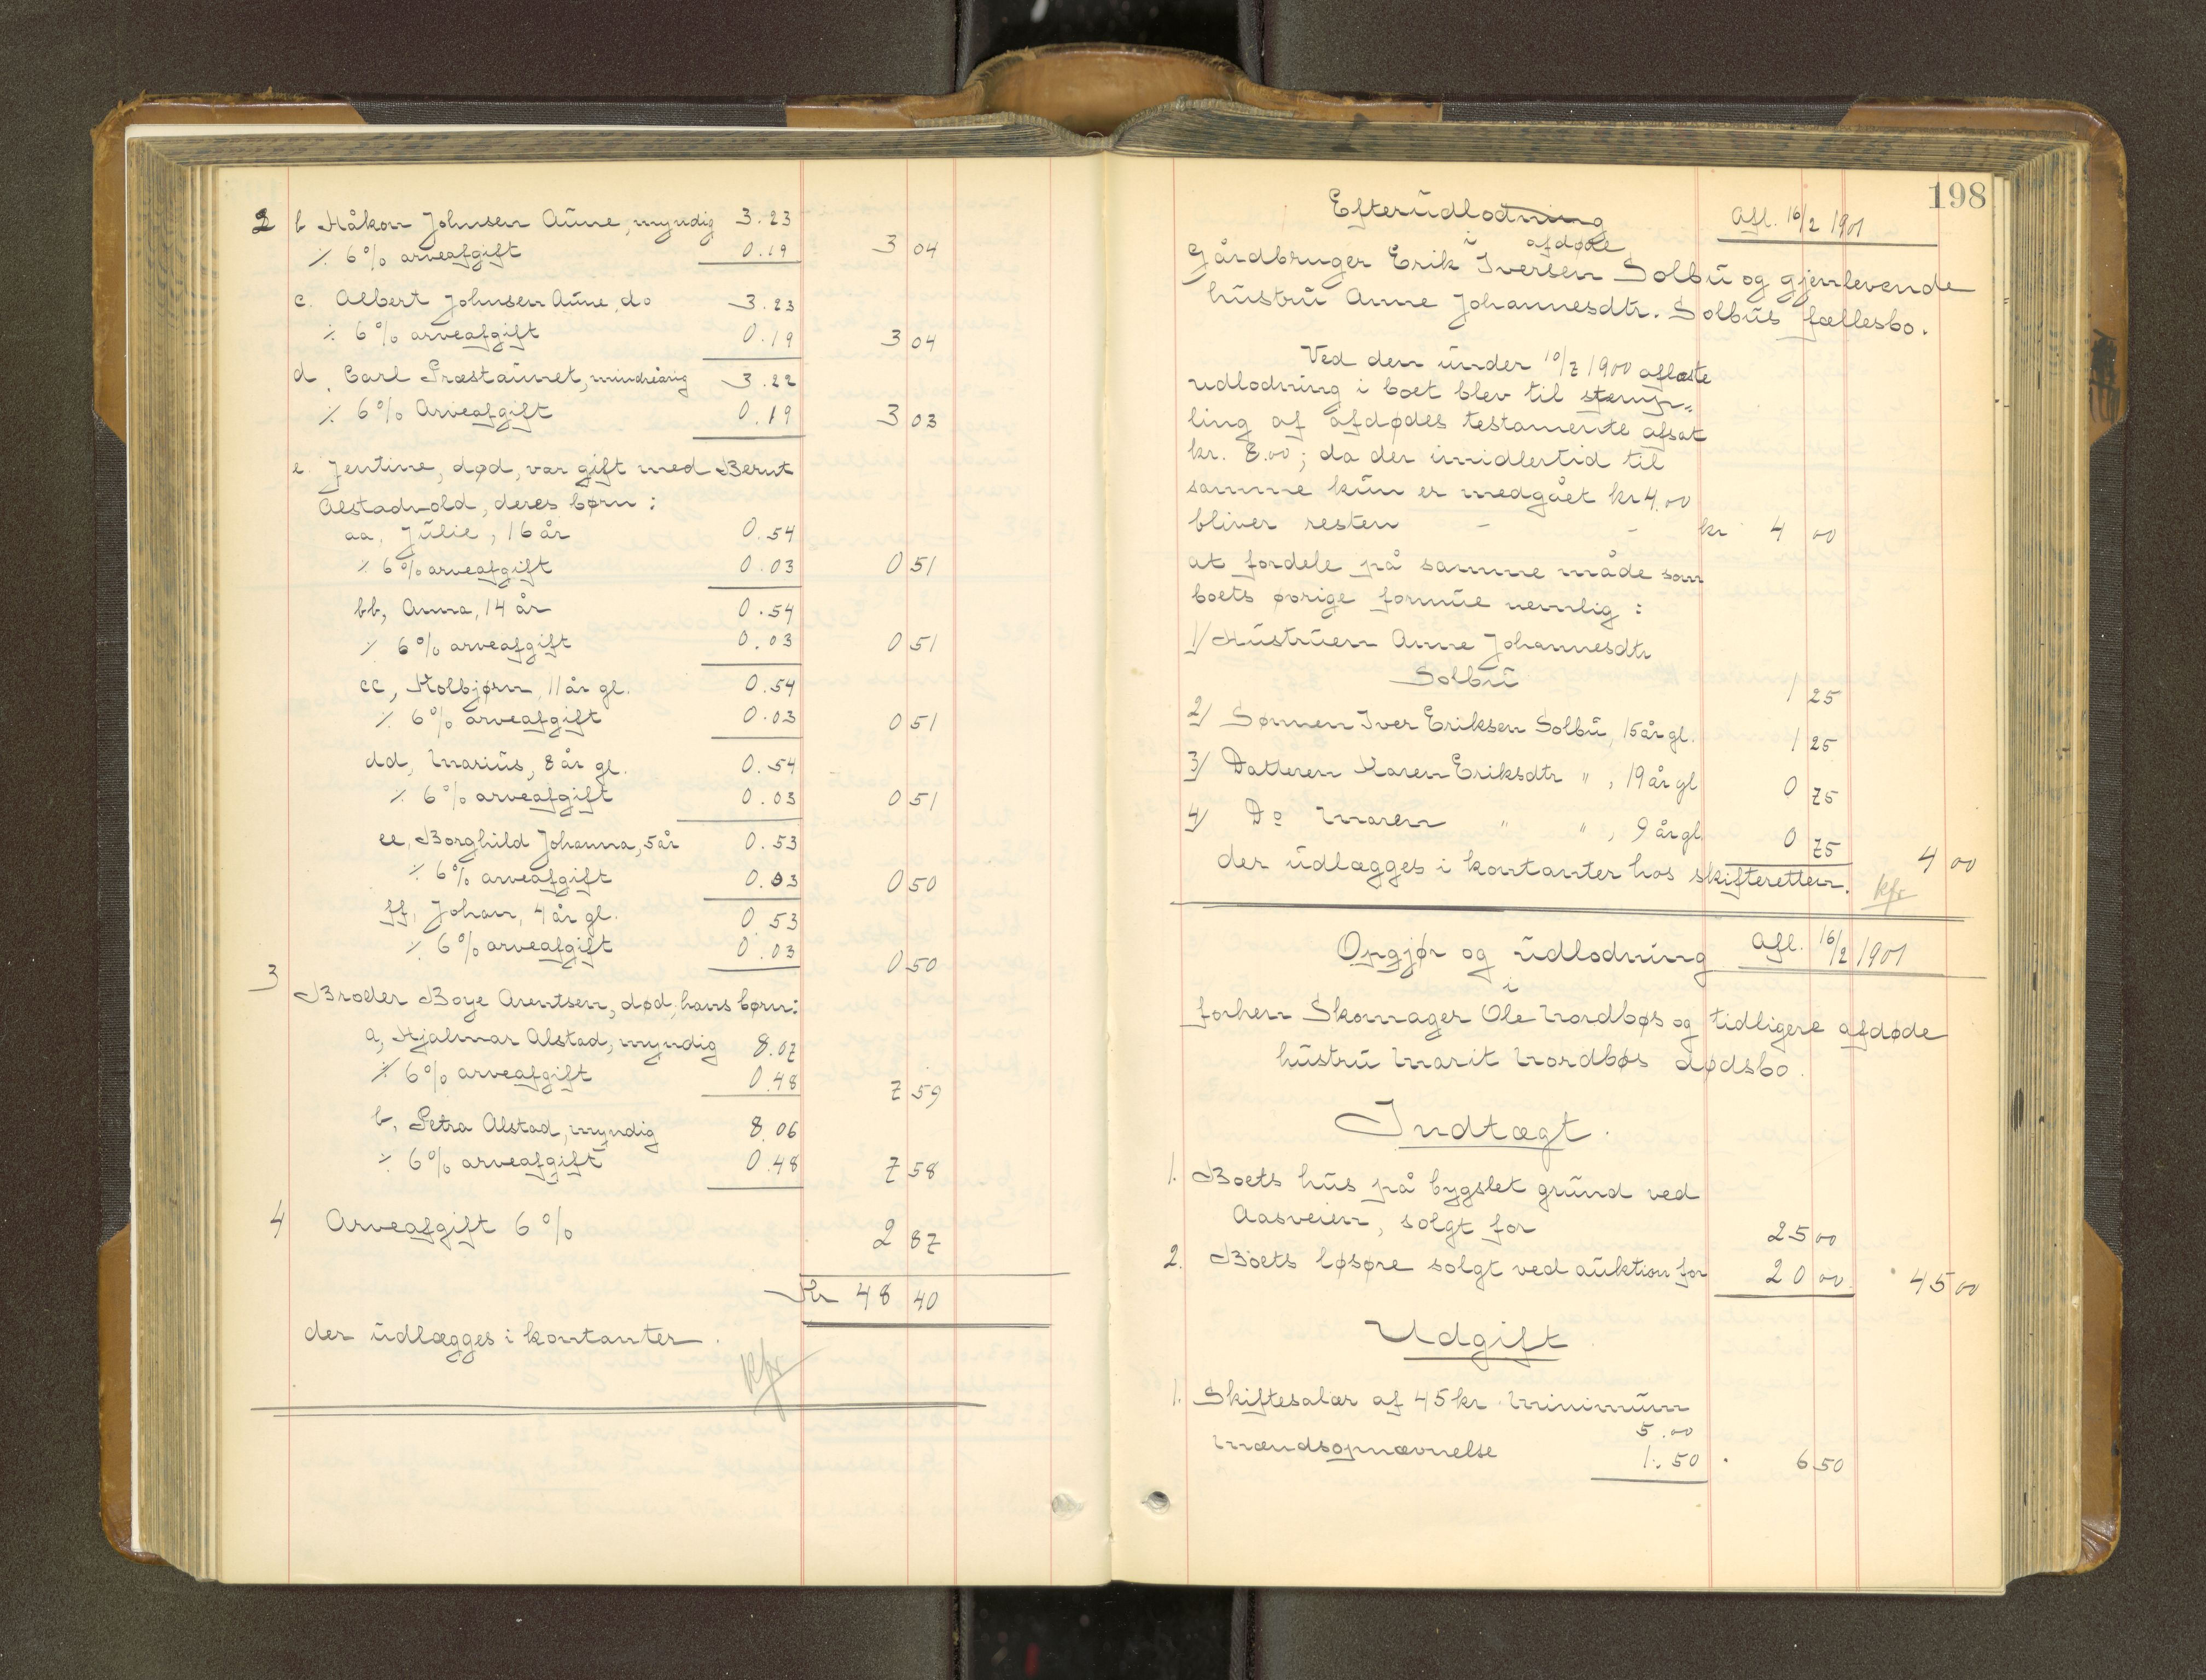 2 b Håkon Johnsen Aune, myndig 3.23
÷ 6% arveafgift 0.19 3 04
c. Albert Johnsen Aune, do 3.23
÷ 6% arveafgift 0.19 3 04
d, Carl Præstaunet, mindreårig 3.22
÷ 6% Arveafgift 0.19 3 03
e. Jentine, død, var gift med Bernt
Alstadvold, deres børn:
aa, Julie, 16 år 0.54
÷ 6% arveafgift 0.03 0 51
bb, Anna, 14 år 0.54
÷ 6% arveafgift 0.03 0 51
cc, Kolbjørn, 11 år gl. 0.54
÷ 6% arveafgift 0.03 0 51
dd, Marius, 8 år gl. 0.54
÷ 6% arveafgift 0.03 0 51
ee, Borghild Johanna, 5 år 0.53
÷ 6% arveafgift 0.03 0 50
ff, Johan, 4 år gl. 0.53
÷ 6% arveafgift 0.03 0 50
3 Broder Boye Arentsen, død, hans børn:
a, Hjalmar Alstad, myndig 8.07
÷ 6% arveafgift 0.48 7 59
b, Petra Alstad, myndig 8.06
÷ 6% arveafgift 0.48 7 58
4 Arveafgift 6% 2 87
Kr 48 40
der udlægges i kontanter.
198
Efterudlodning Afl. 16/2 1901
i afdøde
Gårdbruger Erik Iversen Solbu og gjenlevende
hustru Anne Johannesdtr. Solbus fællesbo.
Ved den under 10/7 1900 aflæste
udlodning i boet blev til stemp=
ling af afdødes testamente afsat
kr. 8.00; da der imidlertid til
samme kun er medgået kr 4.00
bliver resten - - kr 4 00
at fordele på samme måde som
boets øvrige formue nemlig:
1/ Hustruen Anne Johannesdtr
Solbu 1 25
2/ Sønnen Iver Eriksen Solbu, 15 år gl. 1 25
3/ Datteren Karen Eriksdtr ", 19 år gl 0 75
4/ Do Maren " ", 9 år gl. 0 75 4 00
der udlægges i kontanter hos skifteretten.
Opgjør og udlodning Afl. 16/2 1901
i
forhen Skomager Ole Nordbøs og tidligere afdøde
hustru Marit Nordbøs dødsbo.
Indtægt.
1. Boets hus på bygslet grund ved
Aasveien, solgt for 25 00
2. Boets løsøre solgt ved auktion for 20 00 45 00
Udgift
1. Skiftesalær af 45 kr. Minimum
5.00
Mændsopnævnelse 1.50 6 50